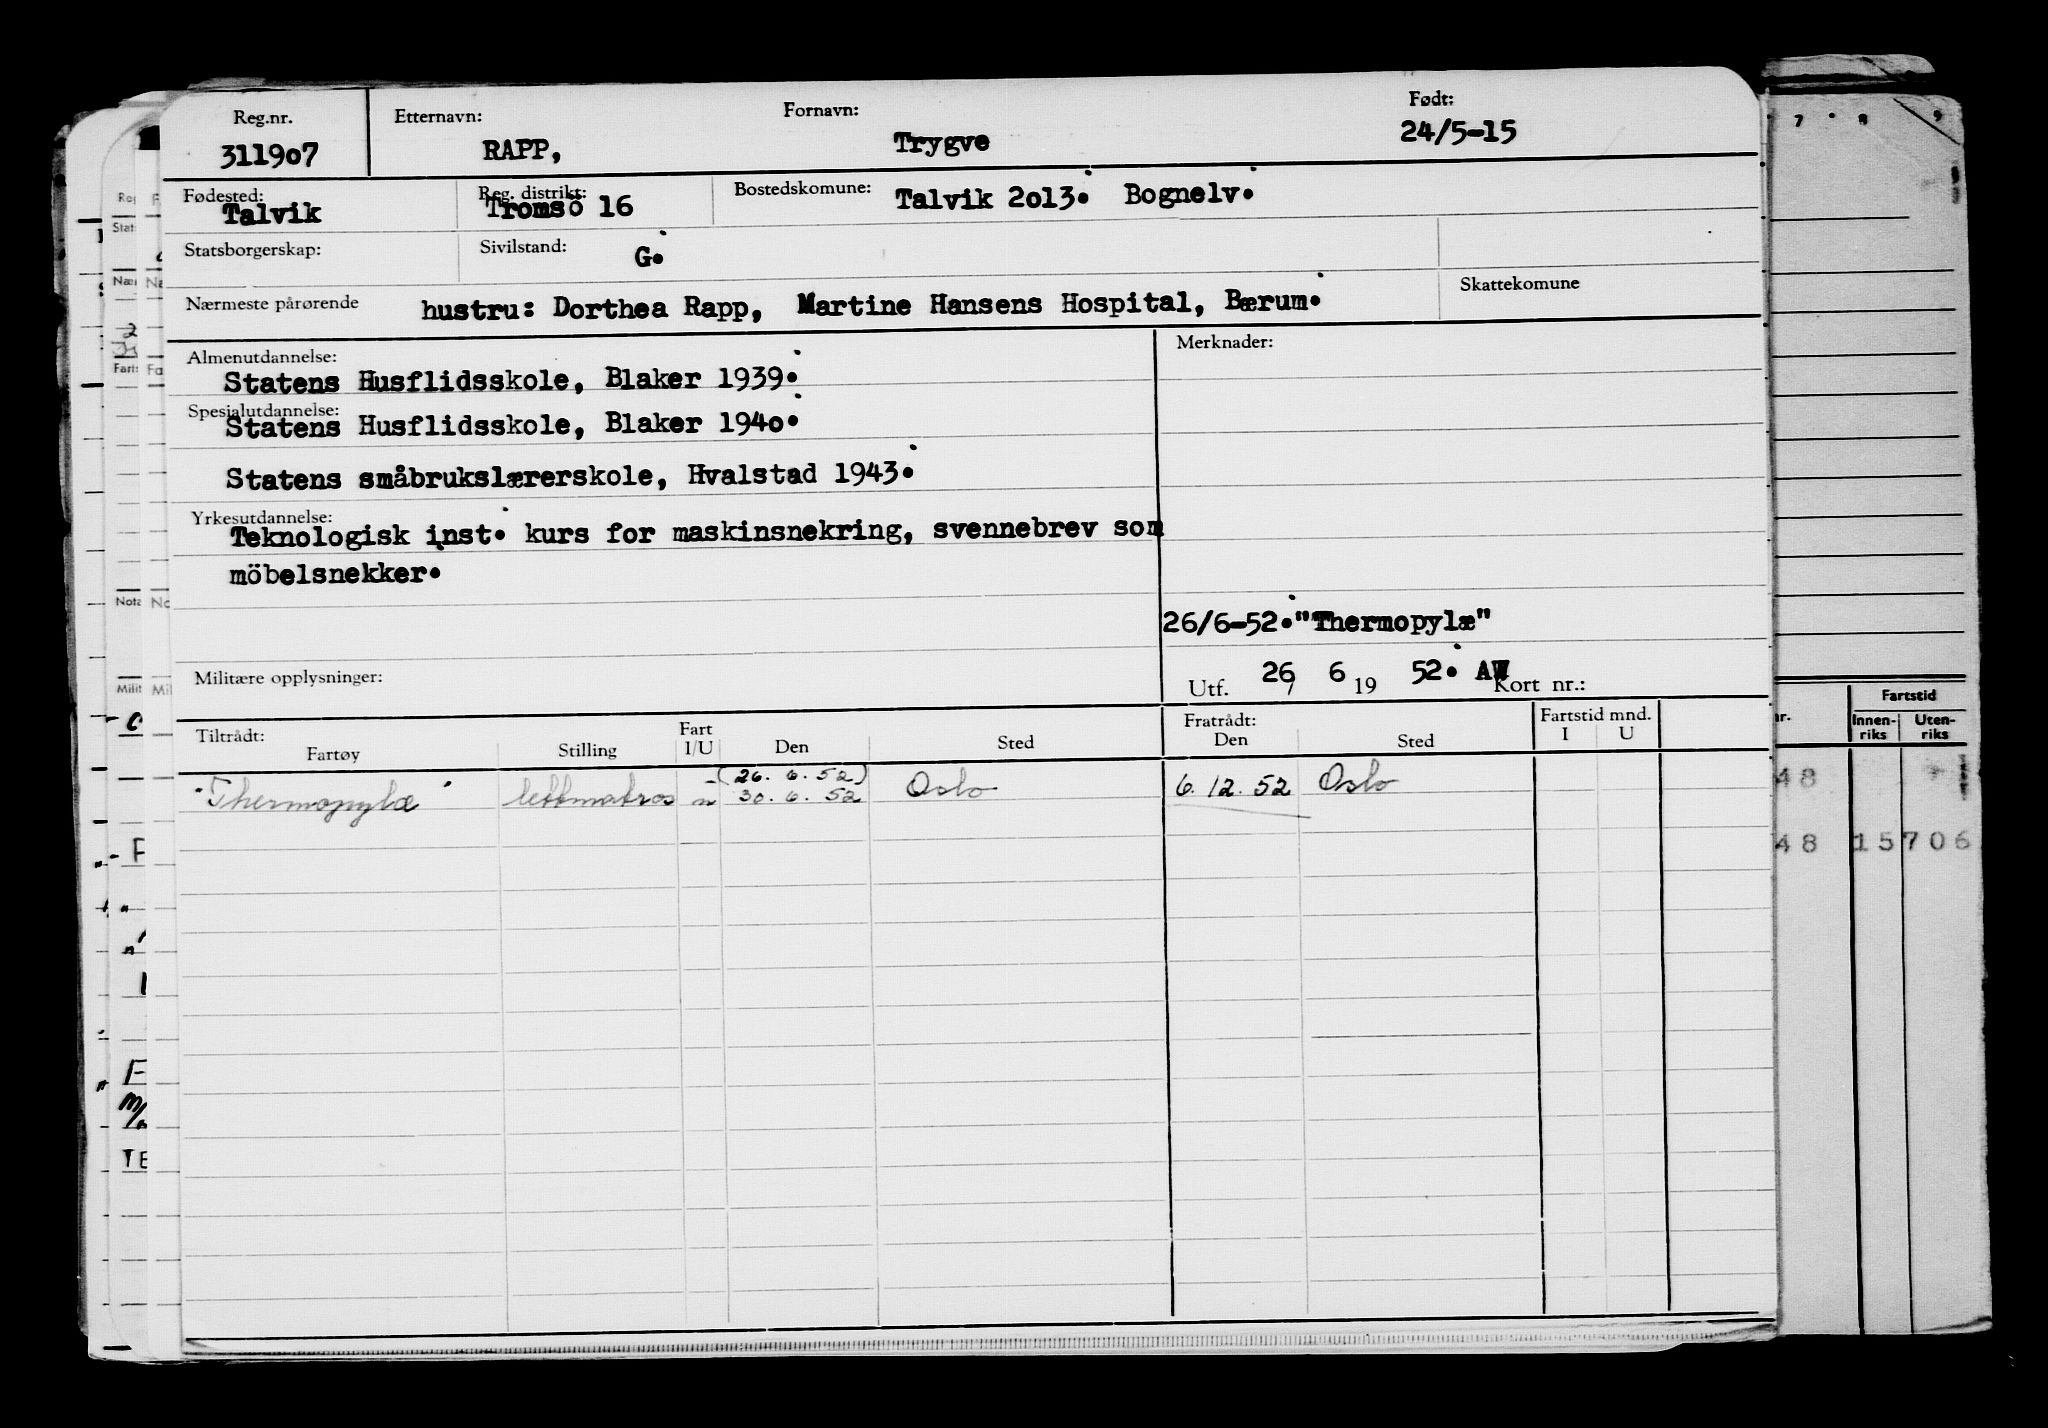 Reg.nr. Etternavn: Fornavn: Født:
311907 RAPP, Trygve 24/5-15
Fødested: Reg. distrikt: Bostedskomune:
Talvik Tromsö 16 Talvik 2013. Bognelv.
Statsborgerskap: Sivilstand: G.
Nærmeste pårørende hustru: Dorthea Rapp, Martine Hansens Hospital, Bærum. Skattekomune
Almenutdannelse: Merknader:
Statens Husflidsskole, Blaker 1939.
Spesialutdannelse:
Statens Husflidsskole, Blaker 1940.
Statens småbrukslærerskole, Hvalstad 1943.
Yrkesutdannelse:
Teknologisk inst. kurs for maskinsnekring, svennebrev som
möbelsnekker.
26/6-52."Thermopylæ"
Militære opplysninger: Utf. 26/ 6 19 52. AW Kort nr.:
Tiltrådt: Fart Fratrådt: Fartstid mnd.
Fartøy Stilling I/U Den Sted Den Sted I U
(26. 6. 52)
"Thermopylæ" lettmatros u 30. 6. 52 Oslo 6. 12. 52 Oslo
7 8 9
Fartstid
Innen-riks Uten-riks
48
48 15 706